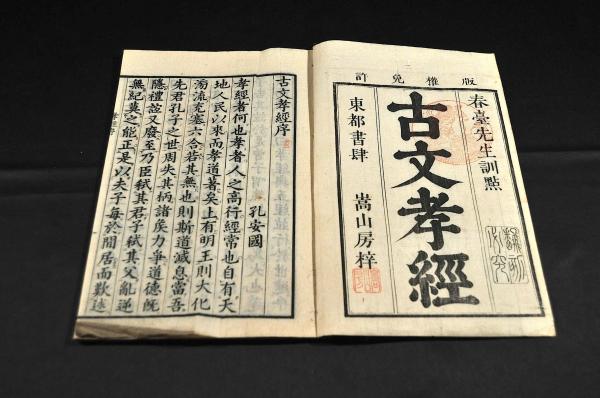 版權免許
春臺先生訓點
古文孝經
東都書肆 嵩山房梓
古文孝經序
孔安國
孝經者何也孝者人之高行經常也自有天
地人民以來而孝道著矣上有明王則大化
滂流充塞六合若其無也則斯道滅息當吾
先君孔子之世周失其柄諸矦力爭道德旣
隱禮誼又廢至乃臣弒其君子弒其父亂逆
無紀莫之能正是以夫子每於閒居而歎述